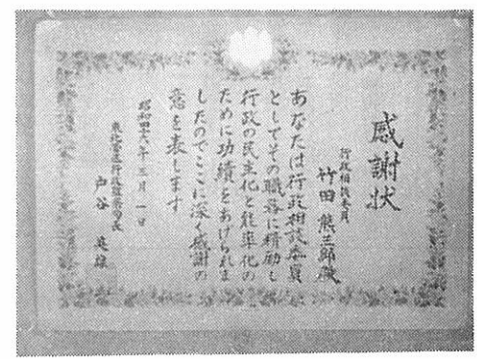 感謝状
行政相談委員
竹田熊三郎殿
あなたは行政相談委員
としてその職務に精励し
行政の民主化と能率化の
ために功績をあげられま
したのでここに深く感謝の
意を表します
昭和四十六年三月一日
東北管区行政監察局長
戸谷